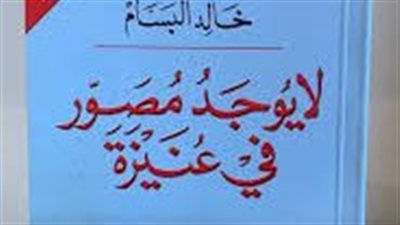 خَالِد البَسَّام
لا يُوجَدُ مُصَوِّر
في عُنَيْزَةَ